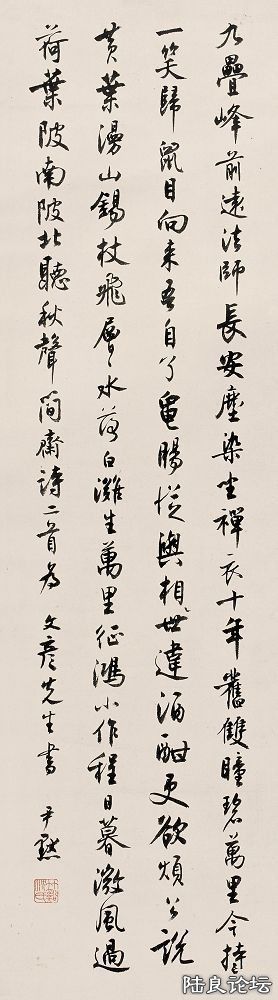 九疊峰前遠法師長安塵染坐禪衣十年舊雙瞳碧萬里今持
一笑歸鼠目向來吾自了龜腸從與相世違酒酣更欲煩公說
黃葉漫山錫杖飛層層水落白灘生萬里征鴻小作程日暮微風過
荷葉陂南陂北聽秋聲簡齋詩二首為文彥先生書 尹默
陆良论坛